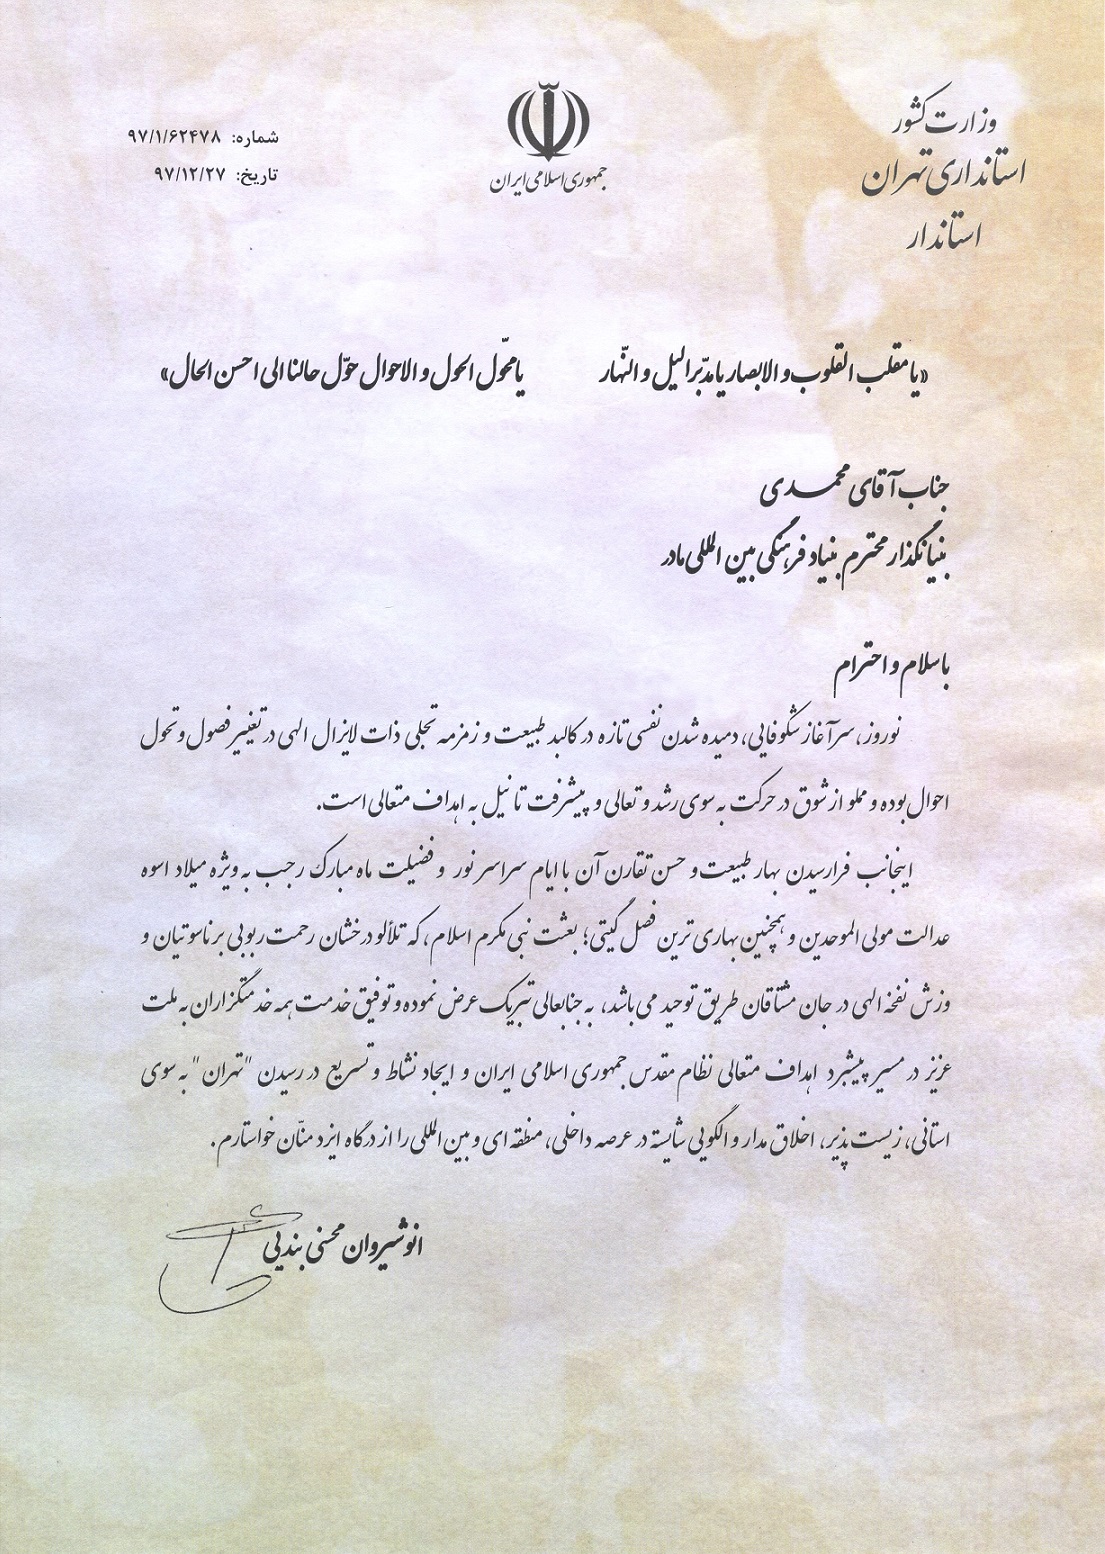 وزارت کشور
استانداری تهران
استاندار
جمهوری اسلامی ایران
شماره: ۹۷/۱/۶۲۴۷۸
تاریخ: ۹۷/۱۲/۲۷
«یا مقلب القلوب و الابصار یا مدبّر الیل و النّهار یا محّول الحول و الاحوال حوّل حالنا الی احسن الحال»
جناب آقای محمدی
بنیانگذار محترم بنیاد فرهنگی بین المللی مادر
با سلام و احترام
نوروز، سرآغاز شکوفایی، دمیده شدن نفسی تازه در کالبد طبیعت و زمزمه تجلی ذات لایزال الهی در تغییر فصول و تحول
احوال بوده و مملو از شوق در حرکت به سوی رشد و تعالی و پیشرفت تا نیل به اهداف متعالی است.
اینجانب فرارسیدن بهار طبیعت و حسن تقارن آن با ایام سراسر نور و فضیلت ماه مبارک رجب به ویژه میلاد اسوه
عدالت مولی الموحدین و همچنین بهاری ترین فصل گیتی؛ بعثت نبی مکرم اسلام، که تلألو درخشان رحمت ربوبی بر ناسوتیان و
وزش نفخه الهی در جان مشتاقان طریق توحید می باشد، به جنابعالی تبریک عرض نموده و توفیق خدمت همه خدمتگزاران به ملت
عزیز در مسیر پیشبرد اهداف متعالی نظام مقدس جمهوری اسلامی ایران و ایجاد نشاط و تسریع در رسیدن "تهران" به سوی
استانی، زیست پذیر، اخلاق مدار و الگویی شایسته در عرصه داخلی، منطقه ای و بین المللی را از درگاه ایزد منّان خواستارم.
انوشیروان محسنی بندپی